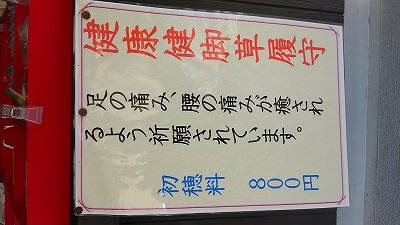 健康健脚草履守
足の痛み、腰の痛みが癒され
るよう祈願されています。
初穂料 800円